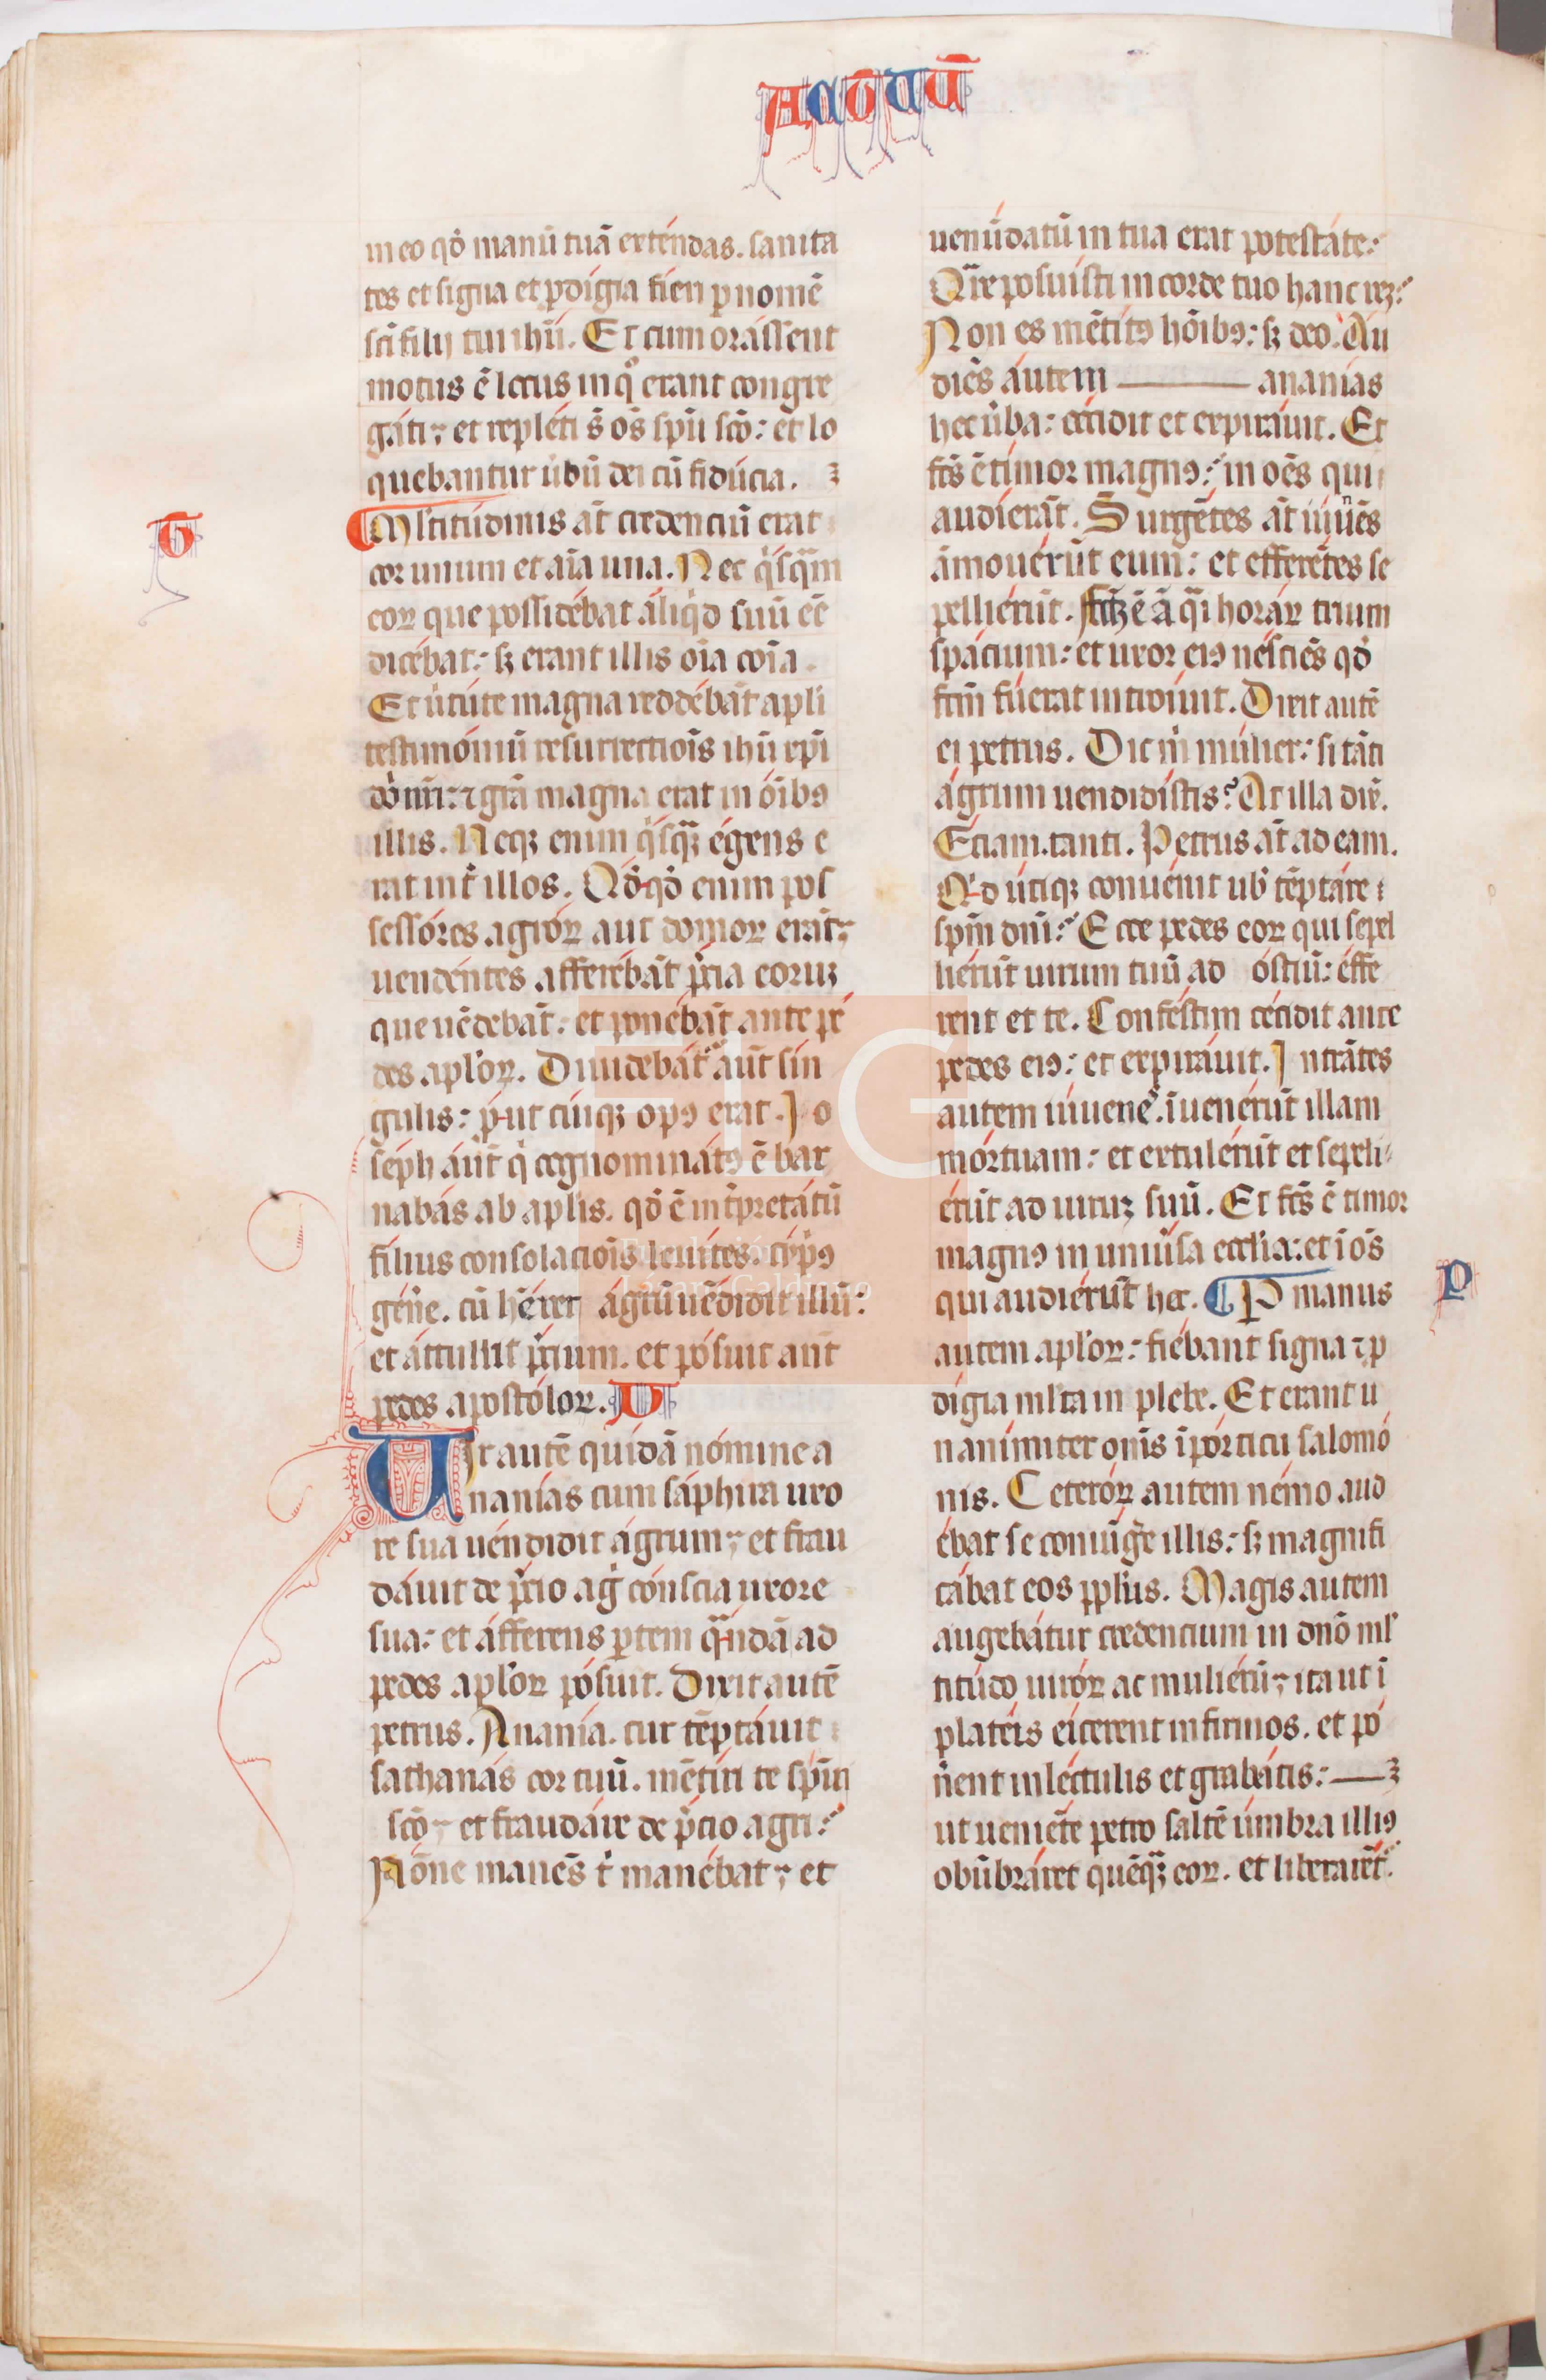 ACTUŪ
in eo qḋ manū tuā exténdas. sanita
tes et signa et ꝓdígia fieri ꝑ nomē
sc̄i filij tui ihū. Et cum orássent
motus ē locus in qͦ erant congre
gáti; et repléti s̄ oēs spū scō: et lo
quebantur ůbū dei cū fidúcia.
G
Ml̄titúdinis āt credenciū erat
cor unum et aīa una. Nec qͥsqͣm
eoꝝ que possidébat áliqͥd suū eē
dicébat: sꝫ erant illis oīa coīa.
Et ůtúte magna reddébāt apl̄i
testimóniū resurrectiōis ihū xpī
dòni nr̄i: ⁊ gr̄a magna erat in óībꝰ
illis. Neqꝫ enim qͥsqͣꝫ égens e
rat int̉ illos. Qḋqḋ enim pos
sessóres agróꝝ aut domoꝝ erāt;
uendéntes afferébāt p̉cia eoruꝫ
que uēdebāt: et ponébāt ante pé
des apl̄oꝝ. Diuidebāt aūt sin
gulis: ꝓut cúiqꝫ opꝰ erat. Jo
séph aūt qͥ cognominátꝰ ē bar
nabás ab apl̄is. qḋ ē int̉pretátū
fílius consolaciōis leuítes. cýpꝰ
gén̉e. cū hēret ágrū uēdidit illū:
et áttulit p̉cium. et pósuit an̄t
pedes apostóloꝝ. V
Vir autē quídā nómine a
nanías cum sáphira uxo
re sua uéndidit ágrum; et frau
dáuit de p̉cio ag̉i cónscia uxore
sua: et áfferens ꝑtem qͣndā ad
pedes apl̄oꝝ pósuit. Dixit autē
petrus. Ananía. cur tēptáuit
sathanás cor tuū. mētíri te spūi
scō; et fraudáre de p̉cio agri?
Nōne manēs t̉ manébat; et
uenūdatū in tua erat potestáte:
Qͣre posuísti in corde tuo hanc reꝫ?
Non es mētitꝰ hōibꝰ: sꝫ deo. Au
diēs áutem ananías
hec ůba: cécidit et expiráuit. Et
fc̄s ē timor magnꝰ: in oēs qui
audíerāt. Surgētes āt iúuēs
āmouérūt eum: et efferētes se
pelliérūt. fc̄ꝫ ē ā qͣi horáꝝ trium
spácium: et uxor eiꝰ nésciēs qḋ
fcm̄ fúerat introíuit. Dixit autē
ei petrus. Dic m̉ múlier: si tāti
ágrum uendidístis? At illa dix̉.
Eciam. tanti. Petrus āt ad eam.
Qͥd útiqꝫ conuénit ub̉ tēptáre
spm̄ dnī? Ecce pedes eoꝝ qui sepel
liérūt uirum tuū ad óstiū: éffe
rent et te. Conféstim cécidit ante
pedes eiꝰ: et expiráuit. Intrátes
autem iúuenes. īuenérūt illam
mórtuam: et extulérūt et sepeli
érūt ad uiruꝫ suū. Et fc̄s ē timor
magnꝰ in uniůsa eccl̄ia: et ī oēs
qui audiérūt hec. P manus
P
autem apl̄oꝝ: fiébant signa ⁊ ꝓ
dígia ml̄ta in plebe. Et erant u
nanímiter om̄s ī pórticu salomó
nis. Ceteróꝝ autem némo aud
ébat se coniūg̉e illis: sꝫ magnifi
cábat eos pplūs. Magis autem
augebátur credencium in dnō ml̄
titúdo uiróꝝ ac muliérū; ita ut ī
platéis eícerent infirmos. et pó
n̉ent in léctulis et grabátis:
ut ueniēte petro saltē úmbra illiꝰ
obūbráret quēqͣꝫ eoꝝ. et liberarēt̉.